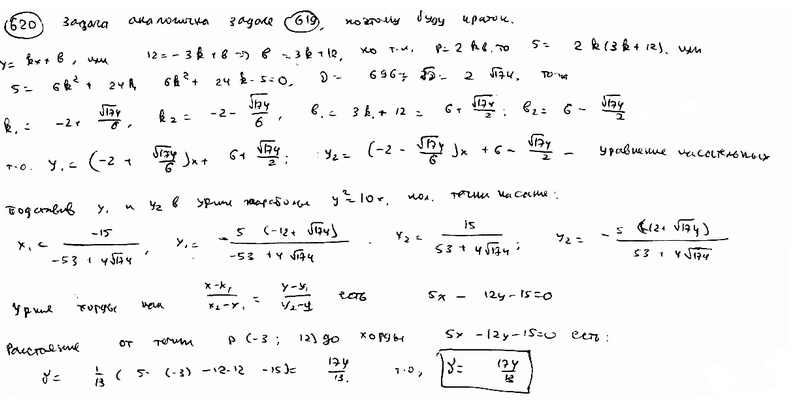 620 Задача аналогична задаче 619, поэтому буду краток.
y = kx + b, или 12 = -3k + b => b = 3k + 12, но т.к. p = 2kb, то 5 = 2k(3k + 12), или
5 = 6k² + 24k, 6k² + 24k - 5 = 0, D = 696; √D = 2√174, тогда
k₁ = -2 + √174/6, k₂ = -2 - √174/6, b₁ = 3k₁ + 12 = 6 + √174/2; b₂ = 6 - √174/2
т.о. y₁ = (-2 + √174/6)x + 6 + √174/2; y₂ = (-2 - √174/6)x + 6 - √174/2 - уравнения касательных
Подставив y₁ и y₂ в ур-ние параболы y² = 10x, пол. точки касания:
x₁ = -15/(-53 + 4√174), y₁ = -5(-12 + √174)/(-53 + 4√174). x₂ = 15/(53 + 4√174); y₂ = -5(12 + √174)/(53 + 4√174)
Ур-ние хорды как (x - x₁)/(x₂ - x₁) = (y - y₁)/(y₂ - y₁) есть 5x - 12y - 15 = 0
Расстояние от точки P(-3; 12) до хорды 5x - 12y - 15 = 0 есть:
γ = 1/13 (5·(-3) - 12·12 - 15) = 174/13. т.о, γ = 174/13